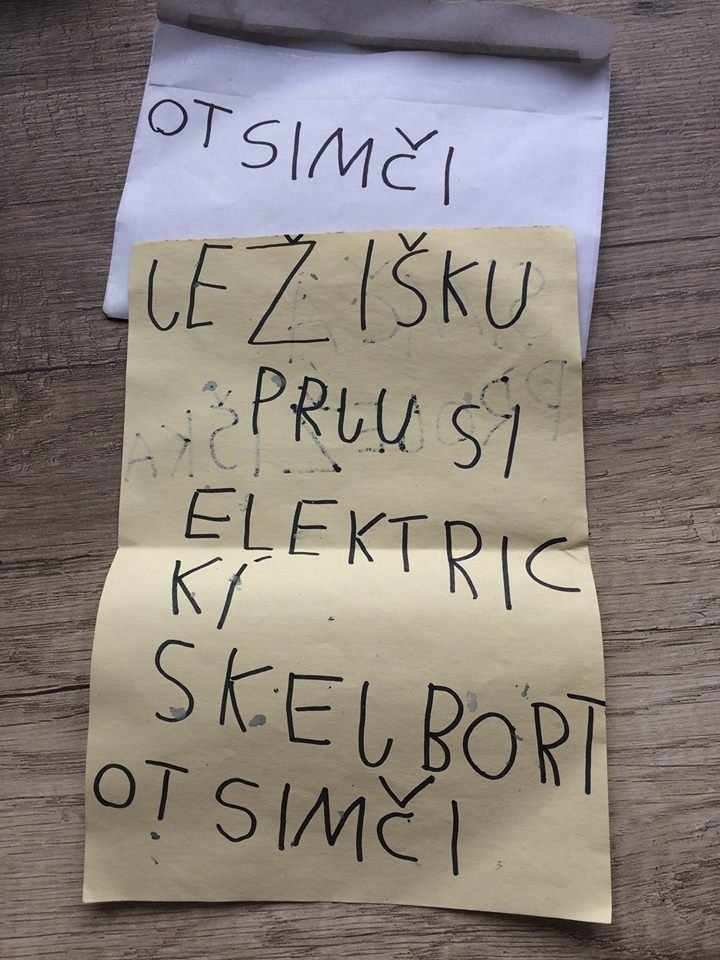 OT SIMČI
JEŽIŠKU
PRJU SI
ELEKTRIC
KÍ
SKEJBORT
OT SIMČI